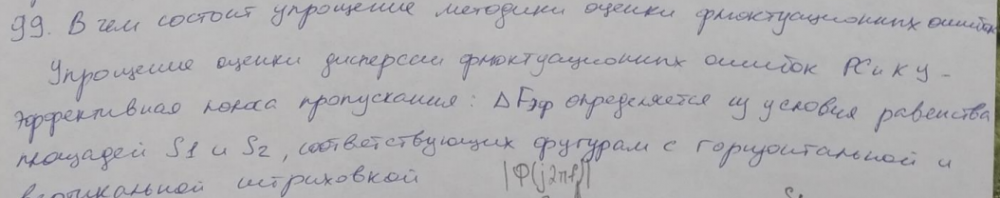 99. В чем состоит упрощение методики оценки флюктуационных ошибок
Упрощение оценки дисперсии флюктуационных ошибок РСиКУ -
эффективная полоса пропускания: ΔFэф определяется из условия равенства
площадей S1 и S2, соответствующих фугурам с горизонтальной и
вертикальной штриховкой |Ф(j2πf)|